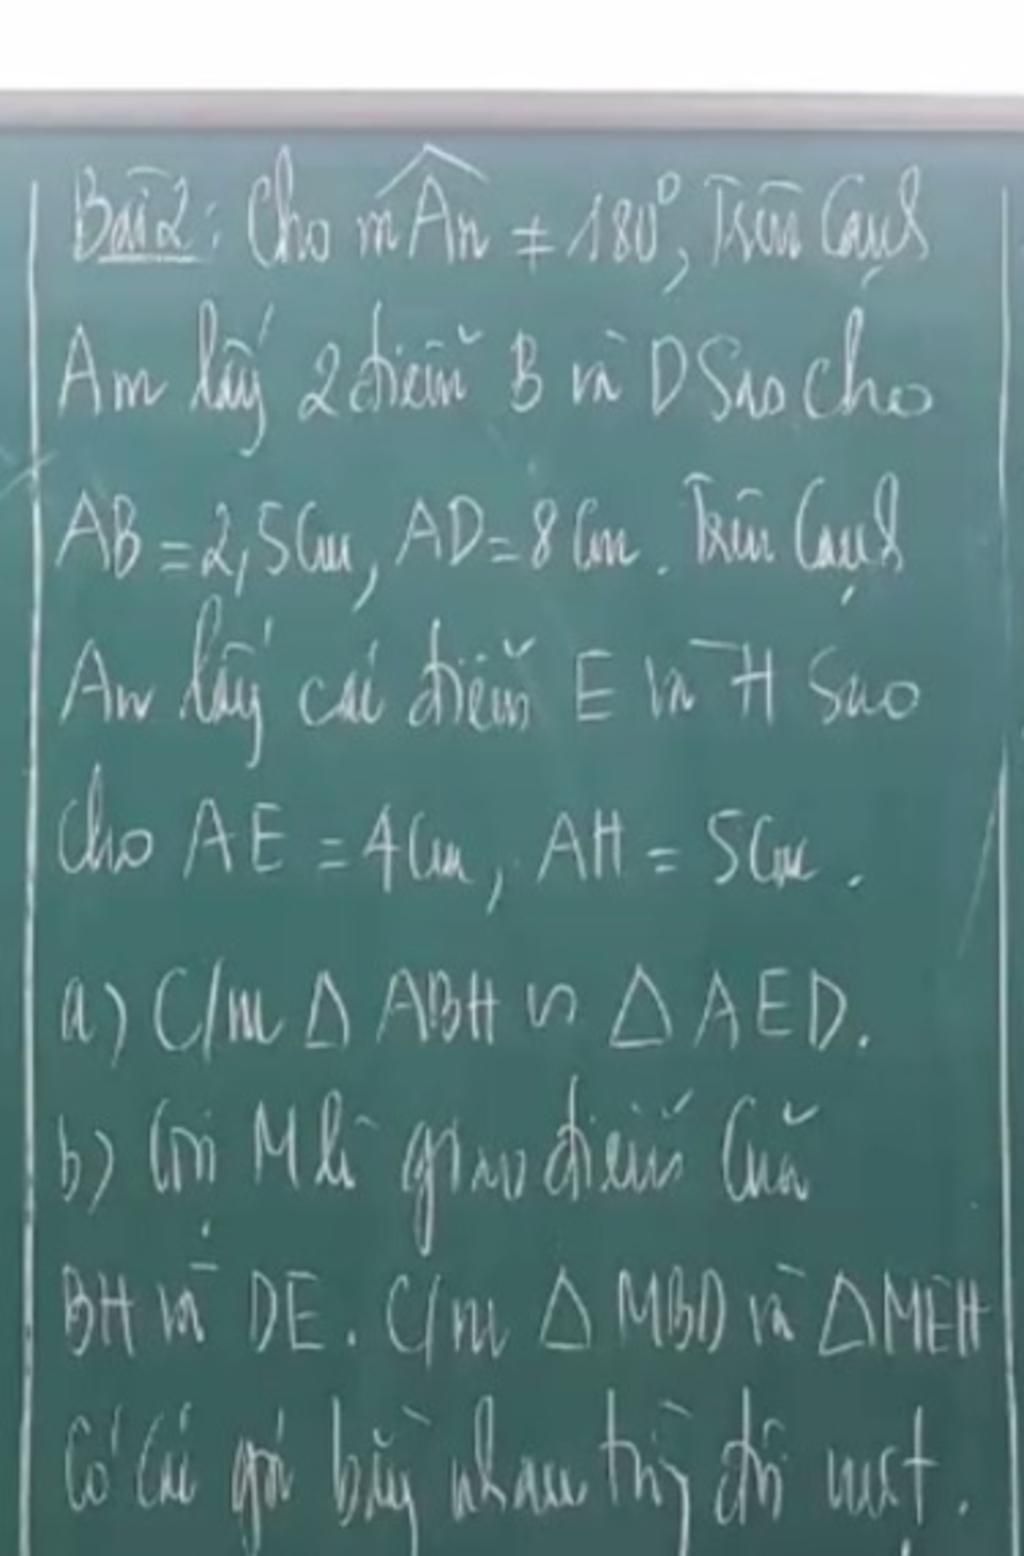 Bài 2: Cho mÂn ≠ 180°, Trên Cạnh
Am lấy 2 điểm B và D Sao cho
AB = 2,5cm, AD = 8cm. Trên Cạnh
An lấy các điểm E và H Sao
cho AE = 4cm, AH = 5cm.
a) C/m △ ABH ∽ △ AED.
b) Gọi M là giao điểm của
BH và DE. C/m △ MBD và △MEH
Có các góc bằng nhau từng đôi một.